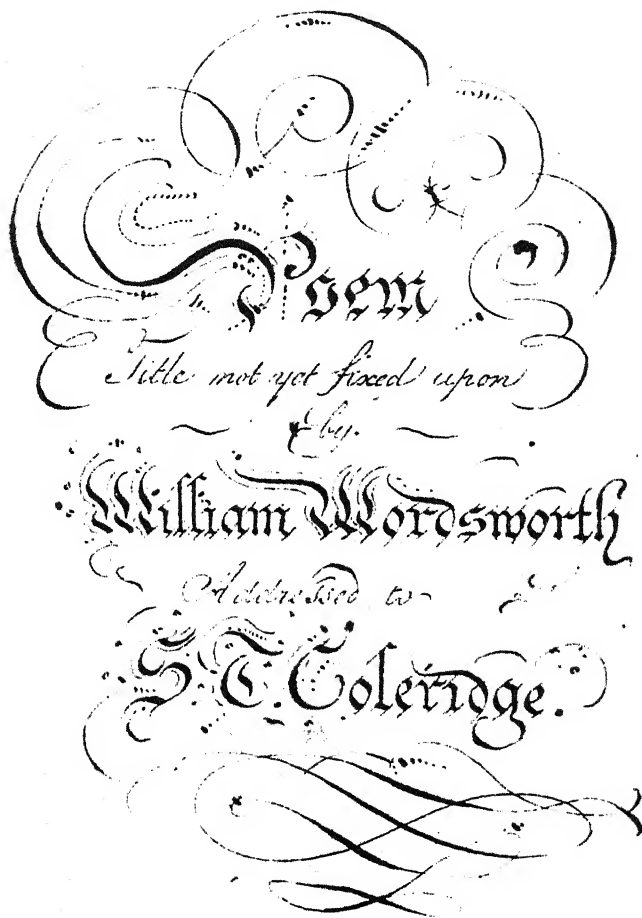 Poem
Title not yet fixed upon
by
William Wordsworth
Addressed to
S. T. Coleridge.